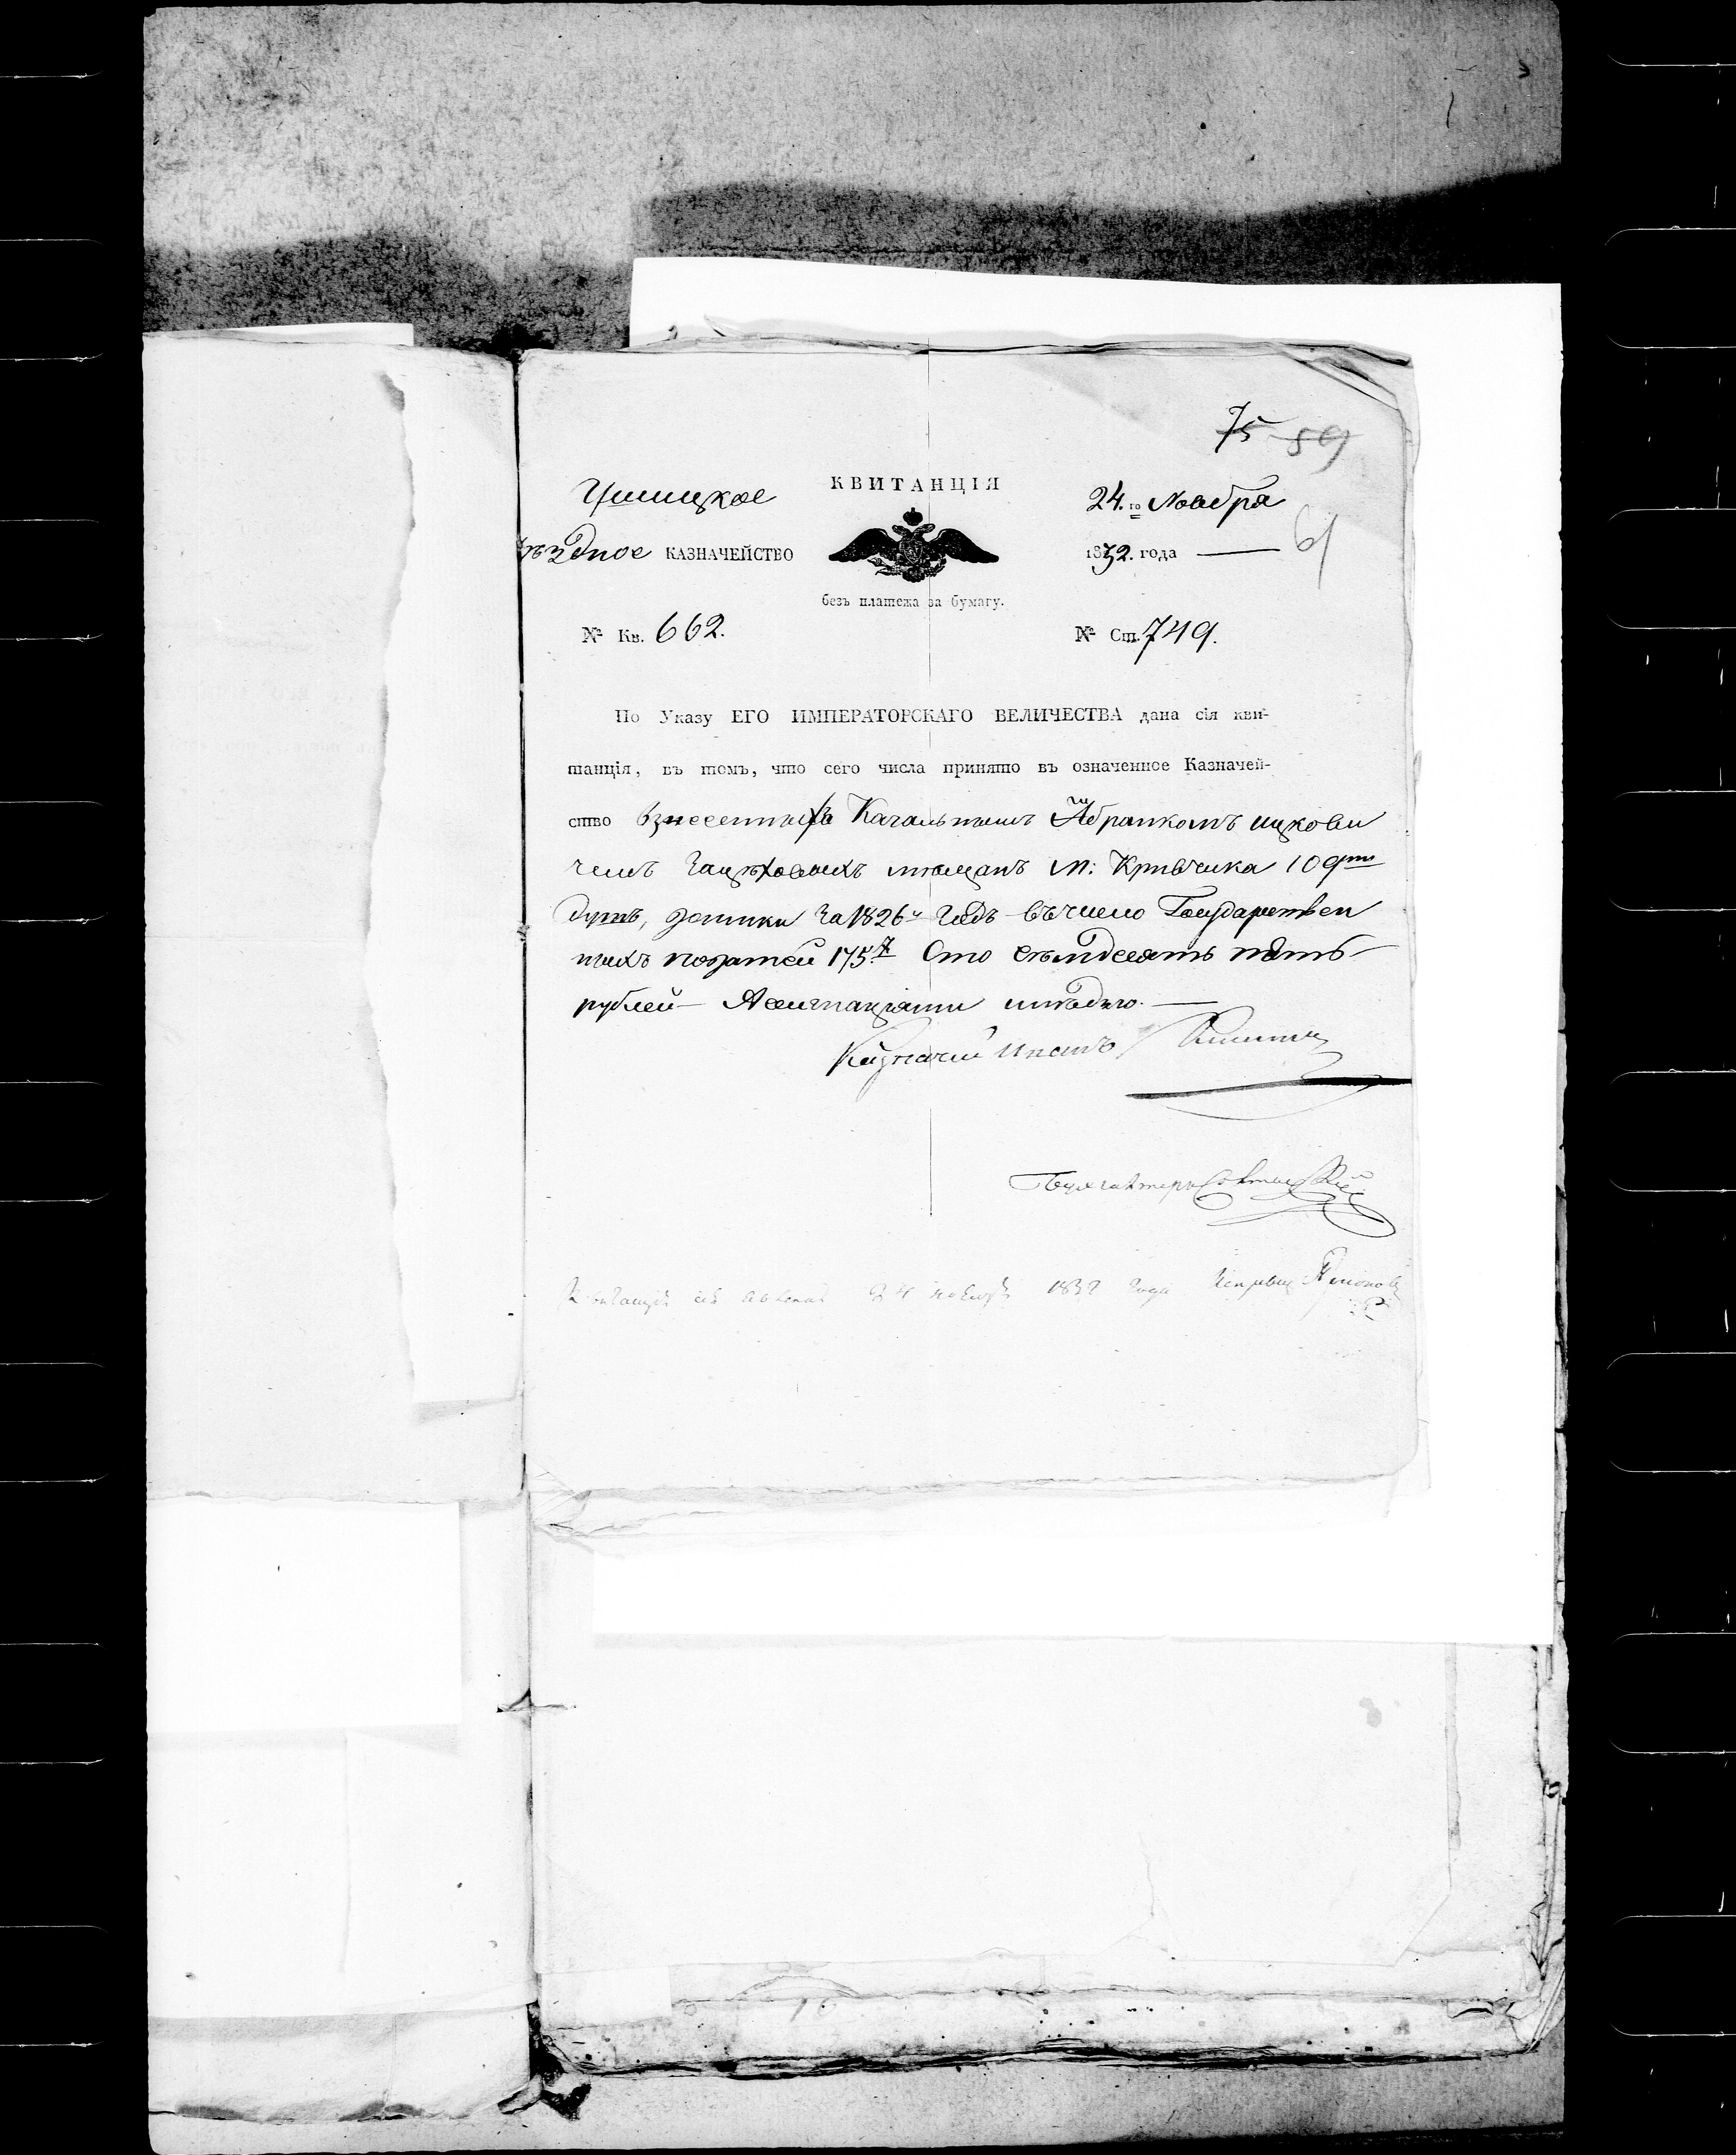 75 89
61
КВИТАНЦІЯ
Ушицкое
24.го Ноября
ѣздное КАЗНАЧЕЙСТВО
1832. года
безъ платежа за бумагу.
№ Кв. 662.
№ Ст. 749.
По Указу ЕГО ИМПЕРАТОРСКАГО ВЕЛИЧЕСТВА дана сія кви-
танція, въ томъ, что сего числа принято въ означенное Казначей-
ство взнесенныхъ Кагальнымъ Абрамкомъ ицкови
чемъ мѣщанъ м: Кривчика
душъ, за 1826й годъ въ число Государствен
ныхъ податей 175 Сто семдесятъ пять
рублей Ассигнаціями
Казначей Иванъ
Бухгалтеръ
Квитанція сія 24 ноября 1832 года